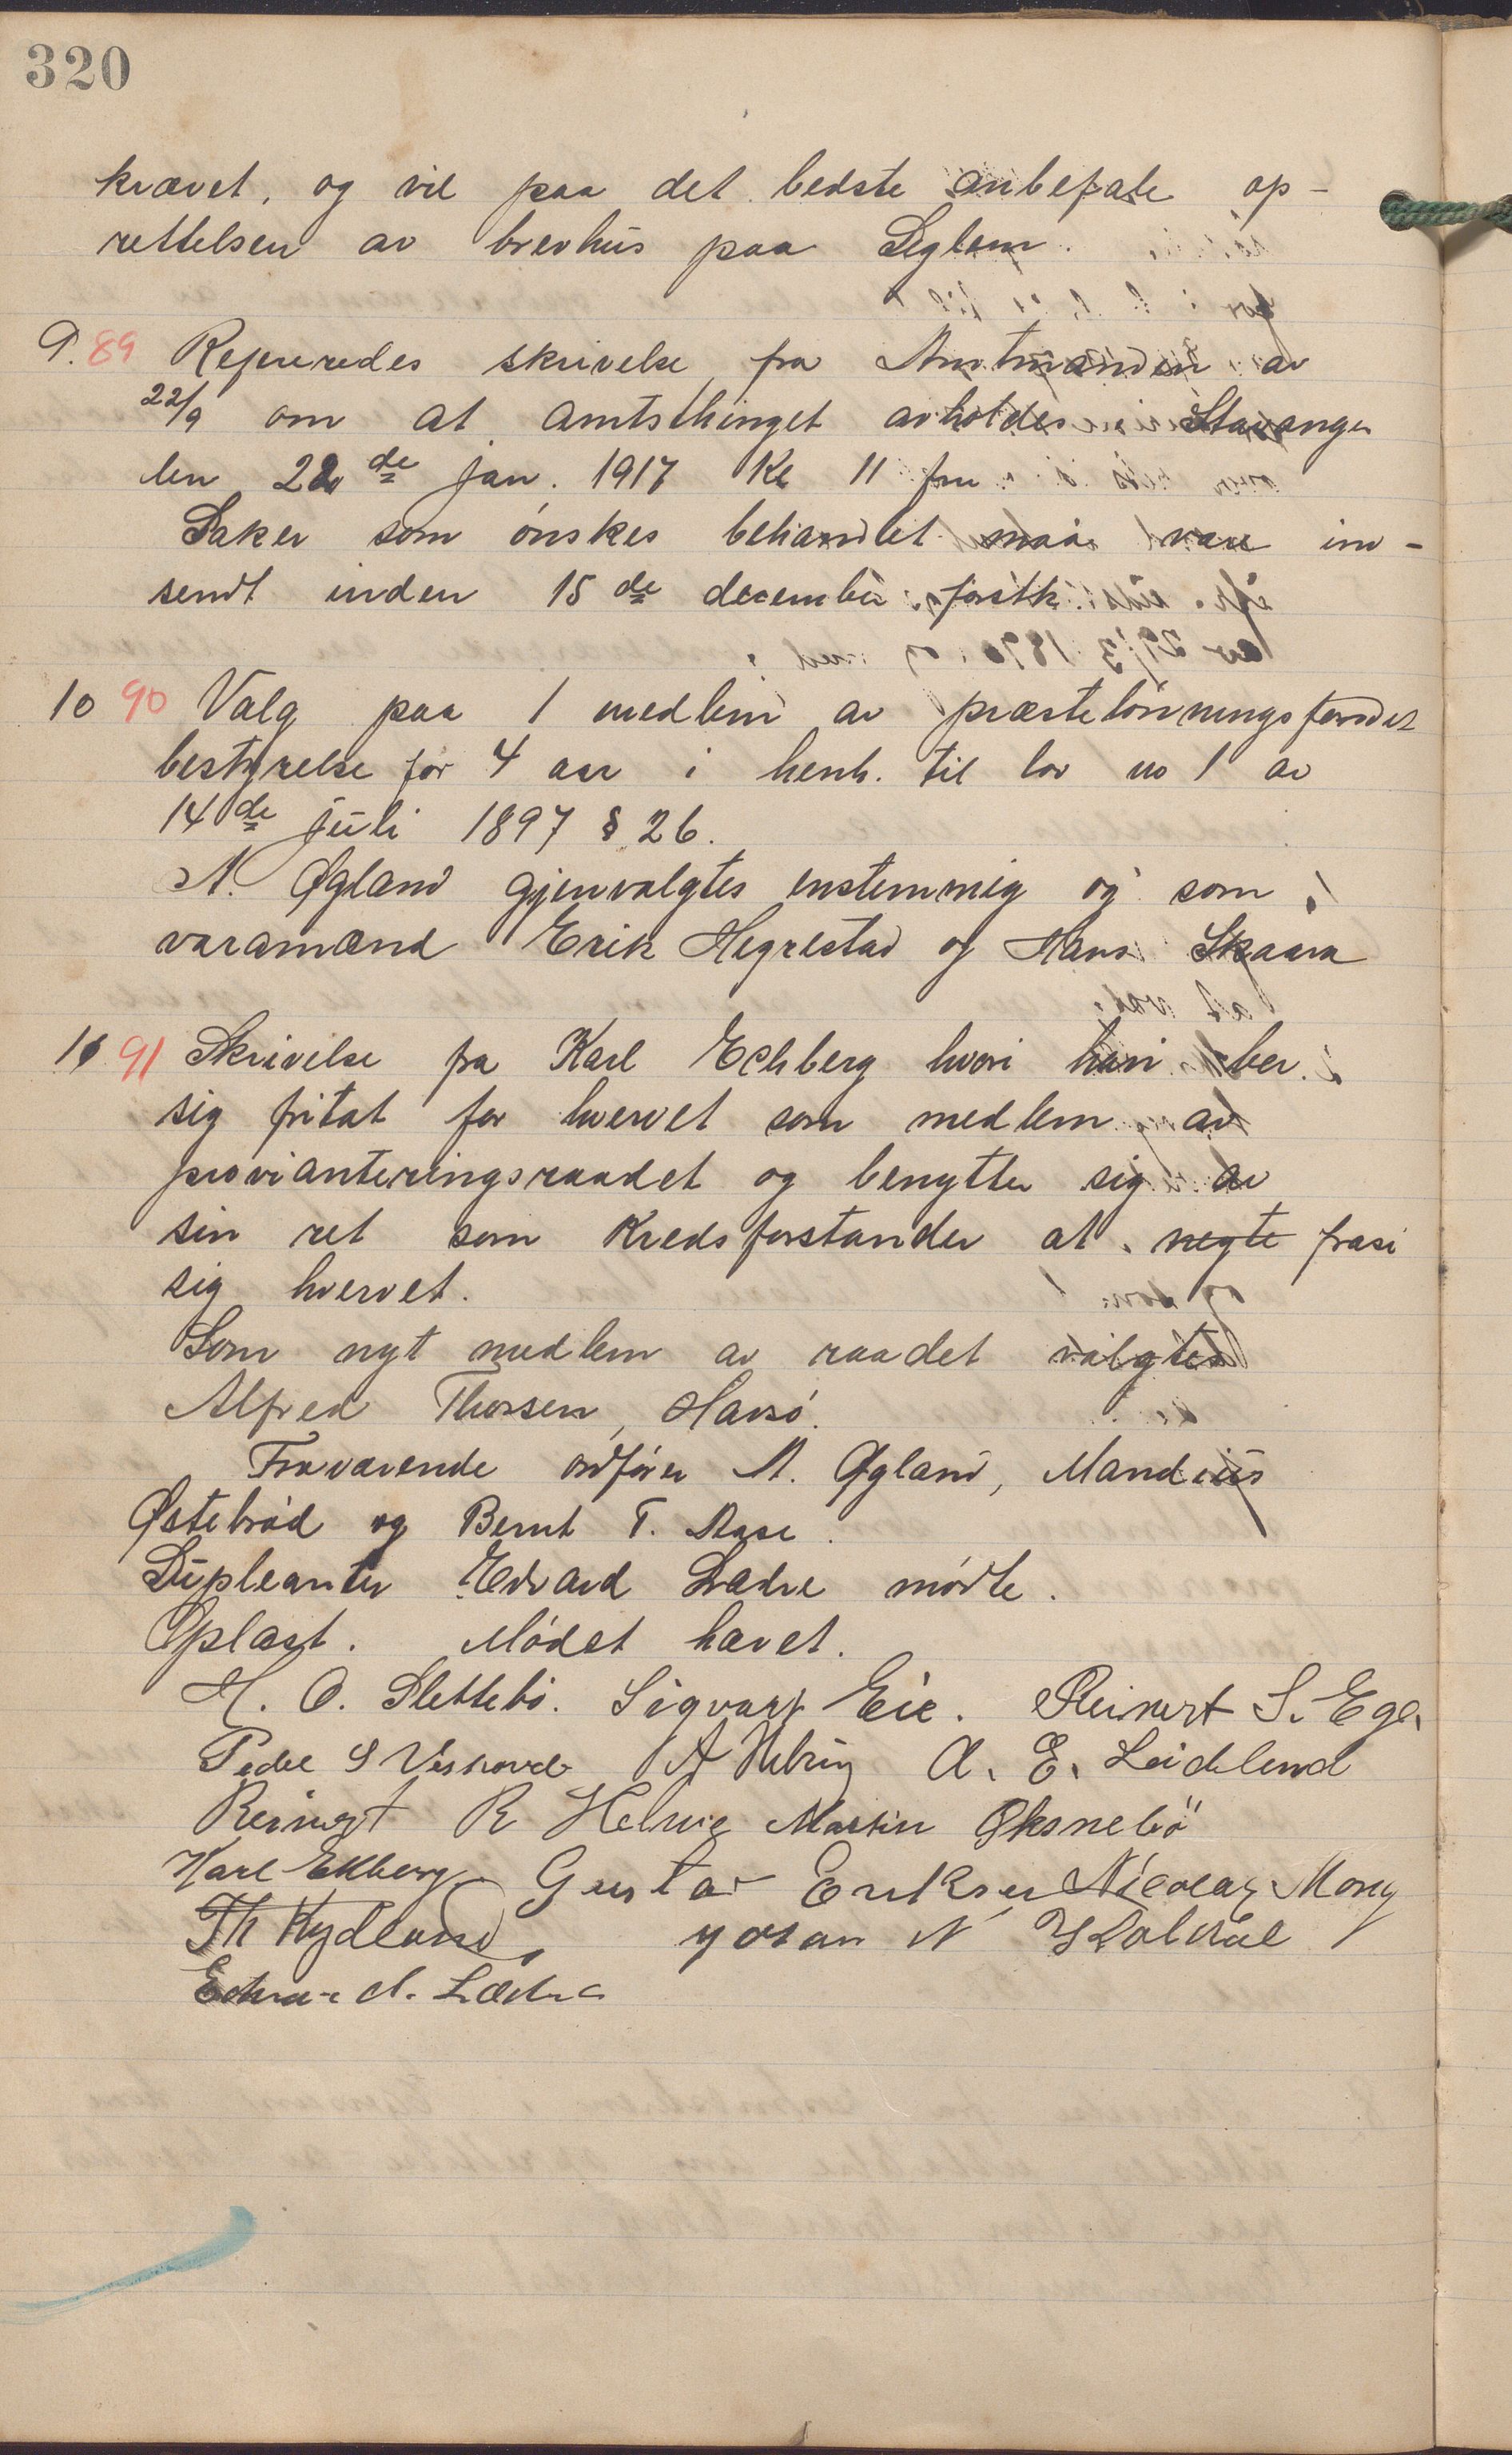 320
krævet, og vil paa det bedste anbefale op-
rettelsen av brevhus paa Seglem.
9. 89 Refereredes skrivelse fra Amtmanden av
22/9 om at amtsthinget avholdes i Stavanger
den 22de jan. 1917 Kl 11 fm
Saker som ønskes behandlet maa være ind-
sendt inden 15de december førstk.
10 90 Valg paa 1 medlem av præstelønningsfondets
bestyrelse for 4 aar i henh. til lov no 1 av
14de juli 1897 § 26.
A. Øgland gjenvalgtes enstemmig og som
varamænd Erik Hegrestad og Hans Skaara
11 91 Skrivelse fra Karl Echberg hvori han ber
sig fritat for hvervet som medlem av
provianteringsraadet og benytter sig av
sin ret som Kredsforstander at negte frasi
sig hvervet.
Som nyt medlem av raadet valgtes
Alfred Thorsen, Havsø.
Fraværende ordfører A. Øgland, Mandius
Østebrød og Bernt T. Aase.
Supleanter Edvard Lædre mødte.
Oplæst. Mødet hævet.
H. O. Slettebø. Sigvart Eie. Reinert S. Ege.
Peder S A. E. Leidland
Reinert R Helvig Martin Øksnebö
Karl Ekberg Gustav Eriksen Nicolay Mong
Th Kydland Gøran N
Edvard Lædre